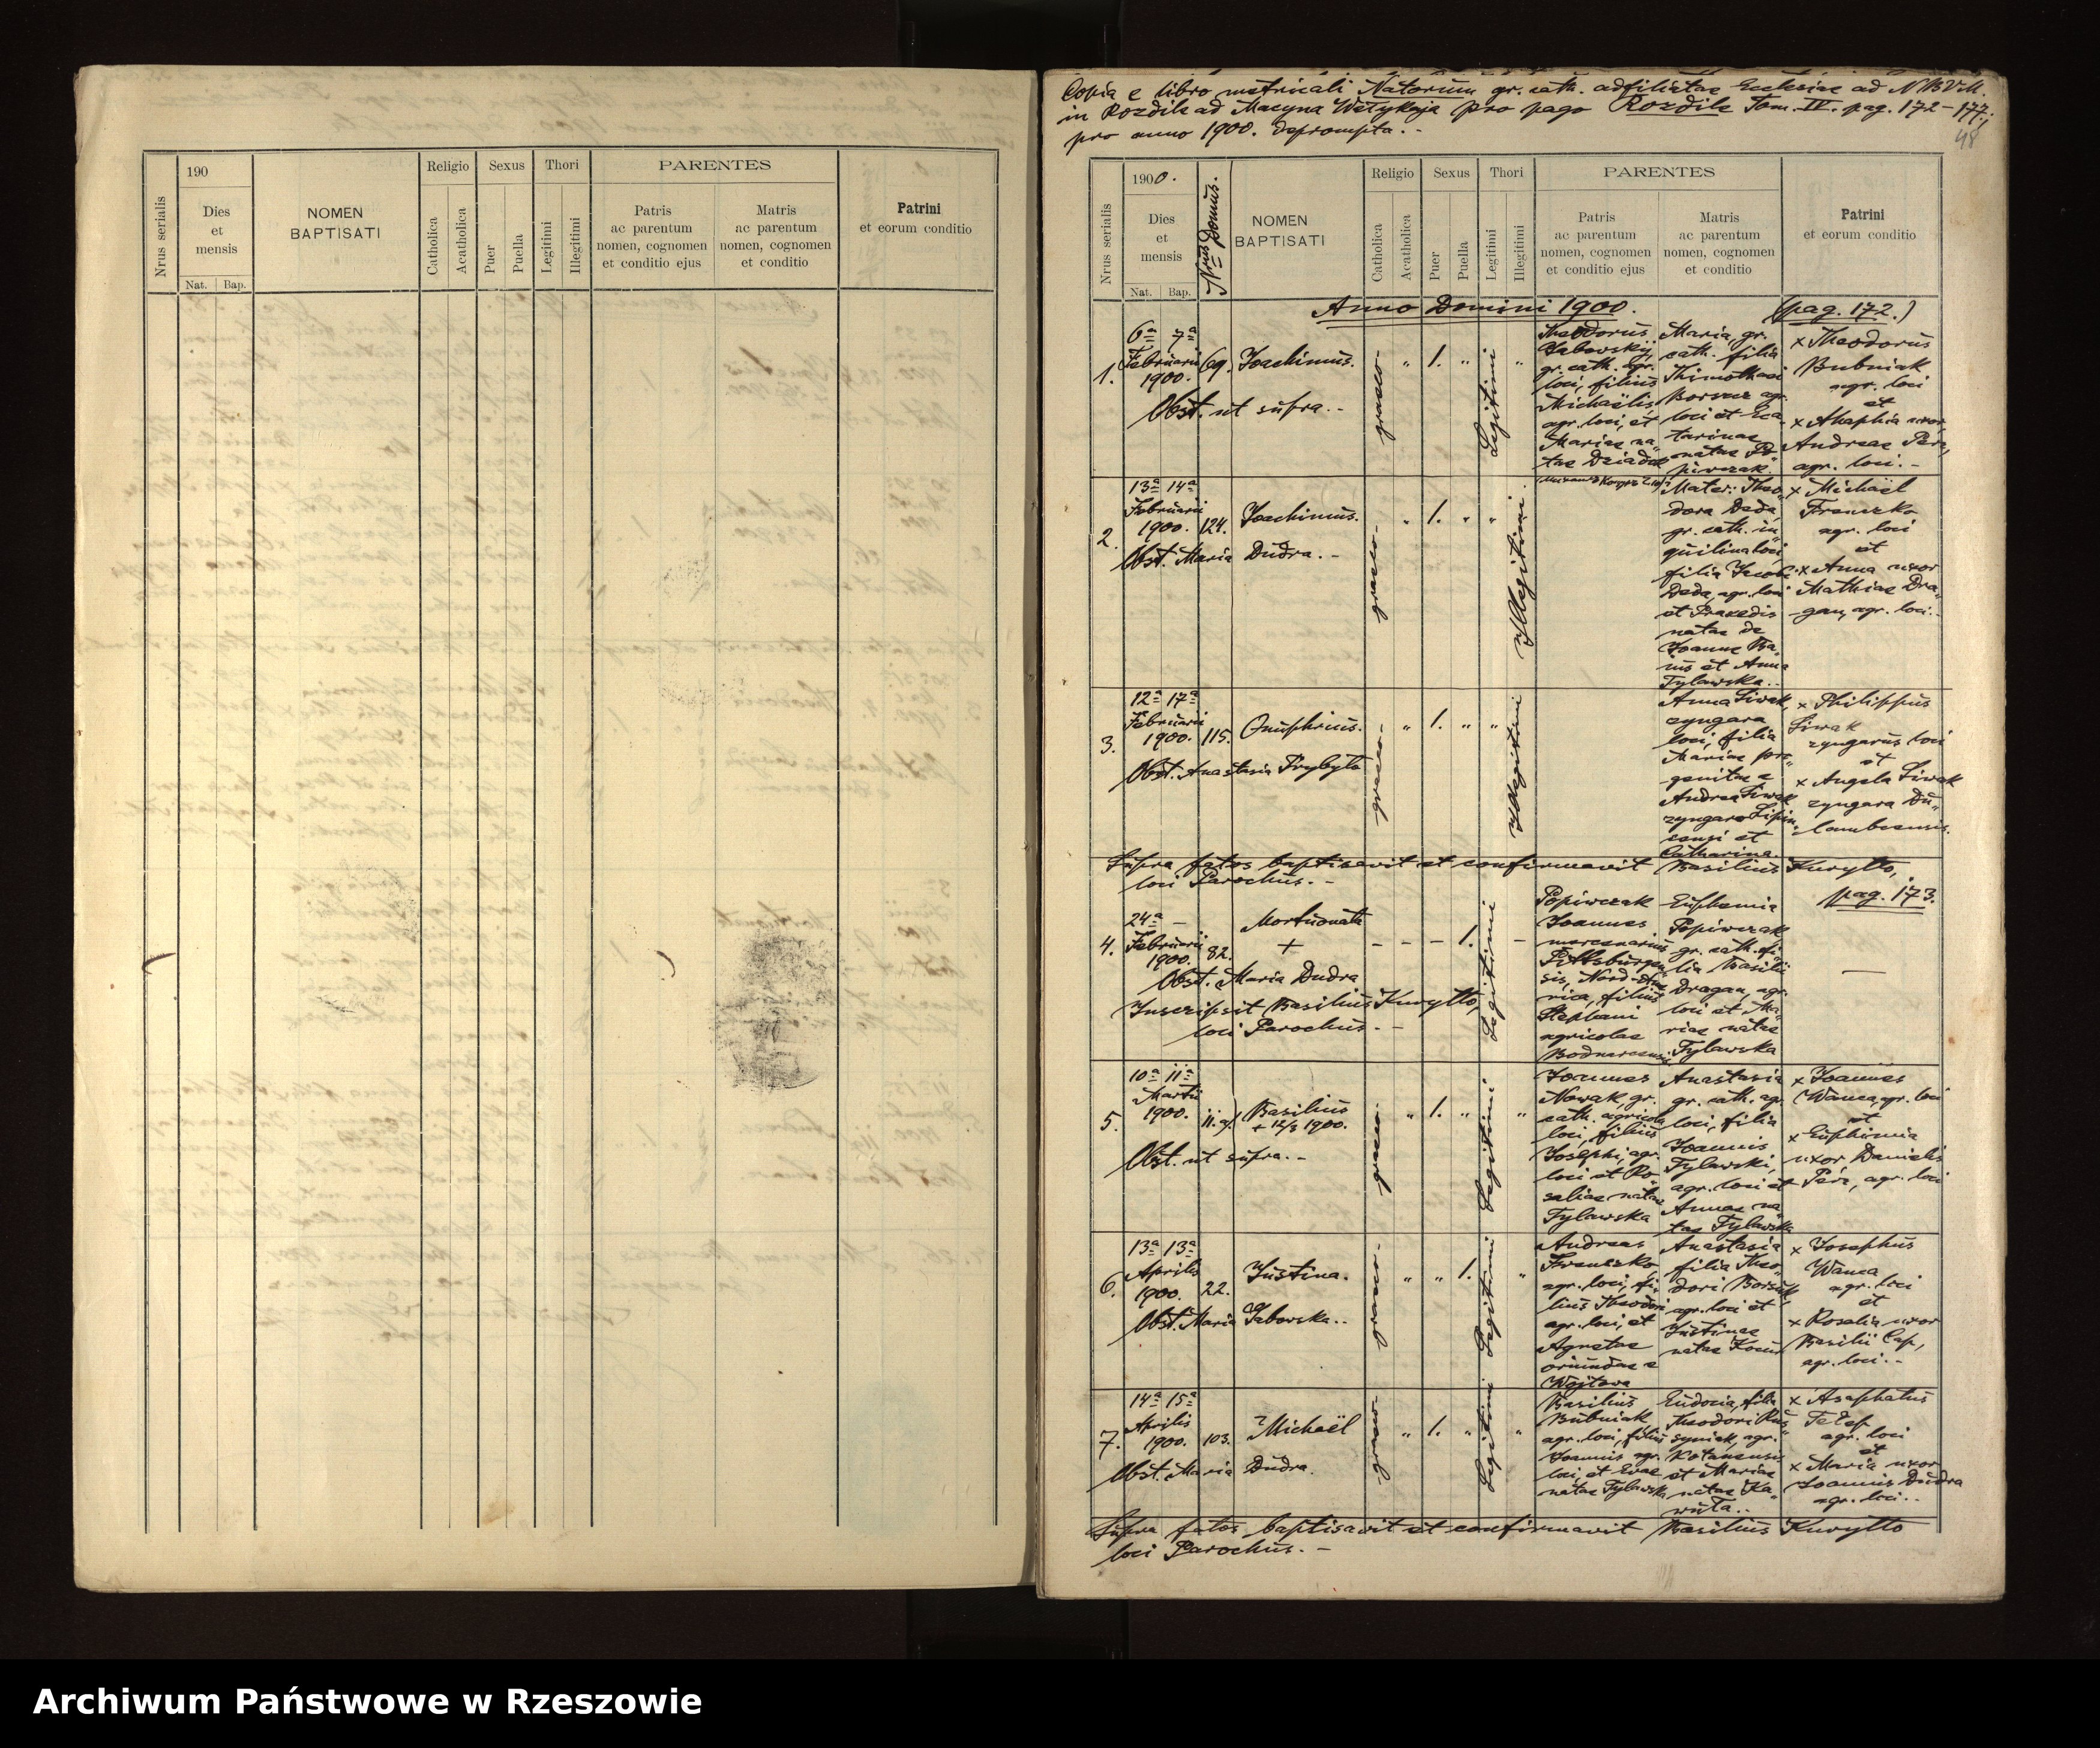 190
Nrus serialis
Dies
et
mensis
Nat. Bap.
NOMEN
BAPTISATI
Religio
Catholica
Acatholica
Sexus
Puer
Puella
Thori
Legitimi
Illegitimi
PARENTES
Patris
ac parentum
nomen, cognomen
et conditio ejus
Matris
ac parentum
nomen, cognomen
et conditio
Patrini
et eorum conditio
Copia e libro metricali Natorum gr. cath. adfiliatae Ecclesiae ad N B V M.
in Rozdile ad Macyna Wełykaja pro pago Rozdile Tom. IV. pag. 172-177,
pro anno 1900. deprompta. -
48
1900.
Nrus serialis
Dies
et
mensis
Nat. Bap.
Nrus Domus.
NOMEN
BAPTISATI
Religio
Catholica
Acatholica
Sexus
Puer
Puella
Thori
Legitimi
Illegitimi
PARENTES
Patris
ac parentum
nomen, cognomen
et conditio ejus
Matris
ac parentum
nomen, cognomen
et conditio
Patrini
et eorum conditio
Anno Domini 1900. (pag. 172.)
1.
6a 7a
Februarii
1900.
69.
Joachimus.
Obst. ut supra. -
graeco-
" 1. "
Legitimi
"
Theodorus
gr. cath. agr.
loci, filius
Michaëlis
agr. loci, et
Mariae na-
tae Dziadek
Maria, gr.
cath. filia
Borsuk agr.
loci et Eca-
tarinae
natae Po-
piwczak.
x Theodorus
Bubniak
agr. loci
et
x Ahaphia uxor
Andreae Pera,
agr. loci. -
2.
13a 14a
Februarii
1900.
124.
Joachimus.
Obst. Maria Dudra. -
graeco-
" 1. " "
Illegitimi
Mater: Theo-
dora Deda
gr. cath. in-
quilina loci
filia Jacobi
Deda, agr. loci
et Praxedis
natae de
Joanne Ba-
nis et Anna
Tylawska..
x Michaël
Frenczko
agr. loci
et
x Anna uxor
Mathiae Dra-
gan, agr. loci..
3.
12a 17a
Februarii
1900.
115.
Onuphrius.
Obst. Anastasia Prybyło
graeco-
" 1. " "
Illegitimi
Anna Siwak
zyngara
loci, filia
Mariae pro-
genitae e
Andrea Siwak
zyngaro Lipin-
censi et
Catharina.
x Philippus
Siwak
zyngarus loci
et
x Angela Siwak
zyngara Du-
lambensis.
Supra fatos baptisavit et confirmavit Basilius Kuryłło,
loci Parochus. -
pag. 173.
4.
24a -
Februarii
1900.
82.
Mortuonata
+
Obst. Maria Dudra
Inscripsit Basilius Kuryłło,
loci Parochus. -
- - - 1. -
Legitimi
Popiwczak
Joannes
mercenarius
Pittsburgen-
sis, Nord-Ame-
rica, filius
Stephani
agricolae
Bodnarcensis
Euphemia
Popiwczak
gr. cath. fi-
lia Basilii
Dragan, agr.
loci et Ma-
riae natae
Tylawska
—
5.
10a 11a
Martii
1900.
Basilius
+ 12/3 1900.
Obst. ut supra. -
graeco-
" 1. "
Legitimi
"
Joannes
Nowak, gr.
cath. agricola
loci, filius
Josephi, agr.
loci et Ro-
saliae natae
Tylawska
Anastasia
gr. cath. agr.
loci, filia
Joannis
Tylawski,
agr. loci et
Annae na-
tae Tylawska
x Joannes
Wanca, agr. loci
et
x Euphimia
uxor Danielis
Pera, agr. loci
6.
13a 13a
Aprilis
1900.
22.
Justina.
Obst. Maria Zaborska..
graeco-
" " 1.
Legitimi
"
Andreas
Frenczko
agr. loci, fi-
lius Theodori
agr. loci, et
Agnetae
oriundae e
Wojtowa
Anastasia
filia Theo-
dori Borsuk,
agr. loci et
Justinae
natae Kocur
x Josephus
Wanca
agr. loci
et
x Rosalia uxor
Basilii Cap,
agr. loci. -
7.
14a 15a
Aprilis
1900.
103.
Michaël
Obst. Maria Dudra.
graeco-
" 1. "
Legitimi
"
Basilius
Bubniak
agr. loci, filius
Joannis agr.
loci, et Evae
natae Tylawska
Eudocia, filia
Theodori Rus-
syniak, agr.
Kotanensis
et Mariae
natae Ka-
wuła..
x Asaphatus
Telep
agr. loci
et
x Maria uxor
Joannis Dudra
agr. loci..
Supra fatos baptisavit et confirmavit Basilius Kuryłło
loci Parochus. -
Archiwum Państwowe w Rzeszowie